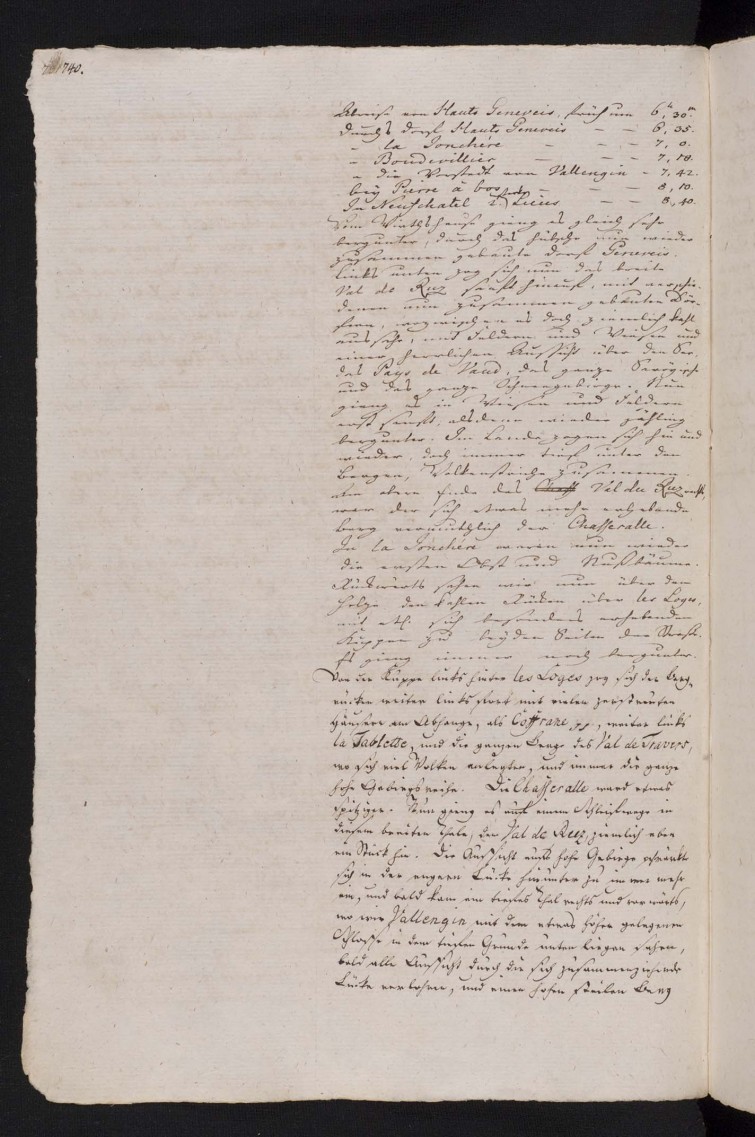 740.
Abreise von Hauts Geneveis, früh um 6h, 30m.
Durchs Dorf Hauts Geneveis — — 6, 35.
- la Jonchére — — 7, 0.
- Boudevillier — — 7, 18.
- die Vorstadt von Vallengin - 7, 42.
bey Pierre à bos — — 8, 10.
In Neufchatel — — 8, 40.
Vom Wirthshause gieng es gleich sehr
bergunter, durch das hübsche nun wieder
zusammen gebaute Dorf Geneveis.
Links unten zog sich nun das breite
Val de Ruz sanft hinauf, mit verschie-
denen nun zusammen gebauten Dör-
fern, wozwischen es doch ziemlich kahl
aussahe, mit Feldern und Wiesen und
einer herrlichen Aussicht über den See,
das Pays de Vaud, das ganze
und das ganze Schneegebirge. Nun
gieng es in Wiesen und Feldern
erst sanft, alsdenn wieder gähling
bergunter. Im Lande zogen sich hin und
wieder, doch immer tief unter den
Bergen, Wolkenstriche zusammen.
Am obern Ende des Val du Ruz
war der sich etwas mehr erhebende
Berg vermuthlich der Chasseralle.
In la Jonchére waren nun wieder
die ersten Obst und Nußbäume.
Rückwerts sahen wir nun über dem
Holze den kahlen Rücken über les Loges,
mit sich besonders erhebenden
Kuppen zu beyden Seiten der
Es gieng immer noch bergunter.
Von der Kuppe links hinter les Loges zog sich der Berg-
rücken weiter links fort mit vielen zerstreuten
Häusern am Abhange, als Coffrane pp, weiter links
la Tablette, und die ganzen Berge des Val de Travers,
wo sich viel Wolken anlegten, und immer die ganze
hohe Gebirgsreihe. Die Chasseralle ward etwas
spitziger. Nun gieng es auf einem Schleichwege in
diesem breiten Thale, den Val de Ruz, ziemlich eben
ein Stück hin. Die Aussicht aufs hohe Gebirge schränkte
sich in der engern Lücke hinunter zu immer mehr
ein, und bald kam ein tiefes Thal rechts und vorwärts,
wo wir Vallengin mit dem etwas höher gelegenen
Schlosse in dem tiefen Grunde unten liegen sahen,
bald alle Aussicht durch die sich zusammenziehende
Lücke verlohren, und einen hohen steilen Berg